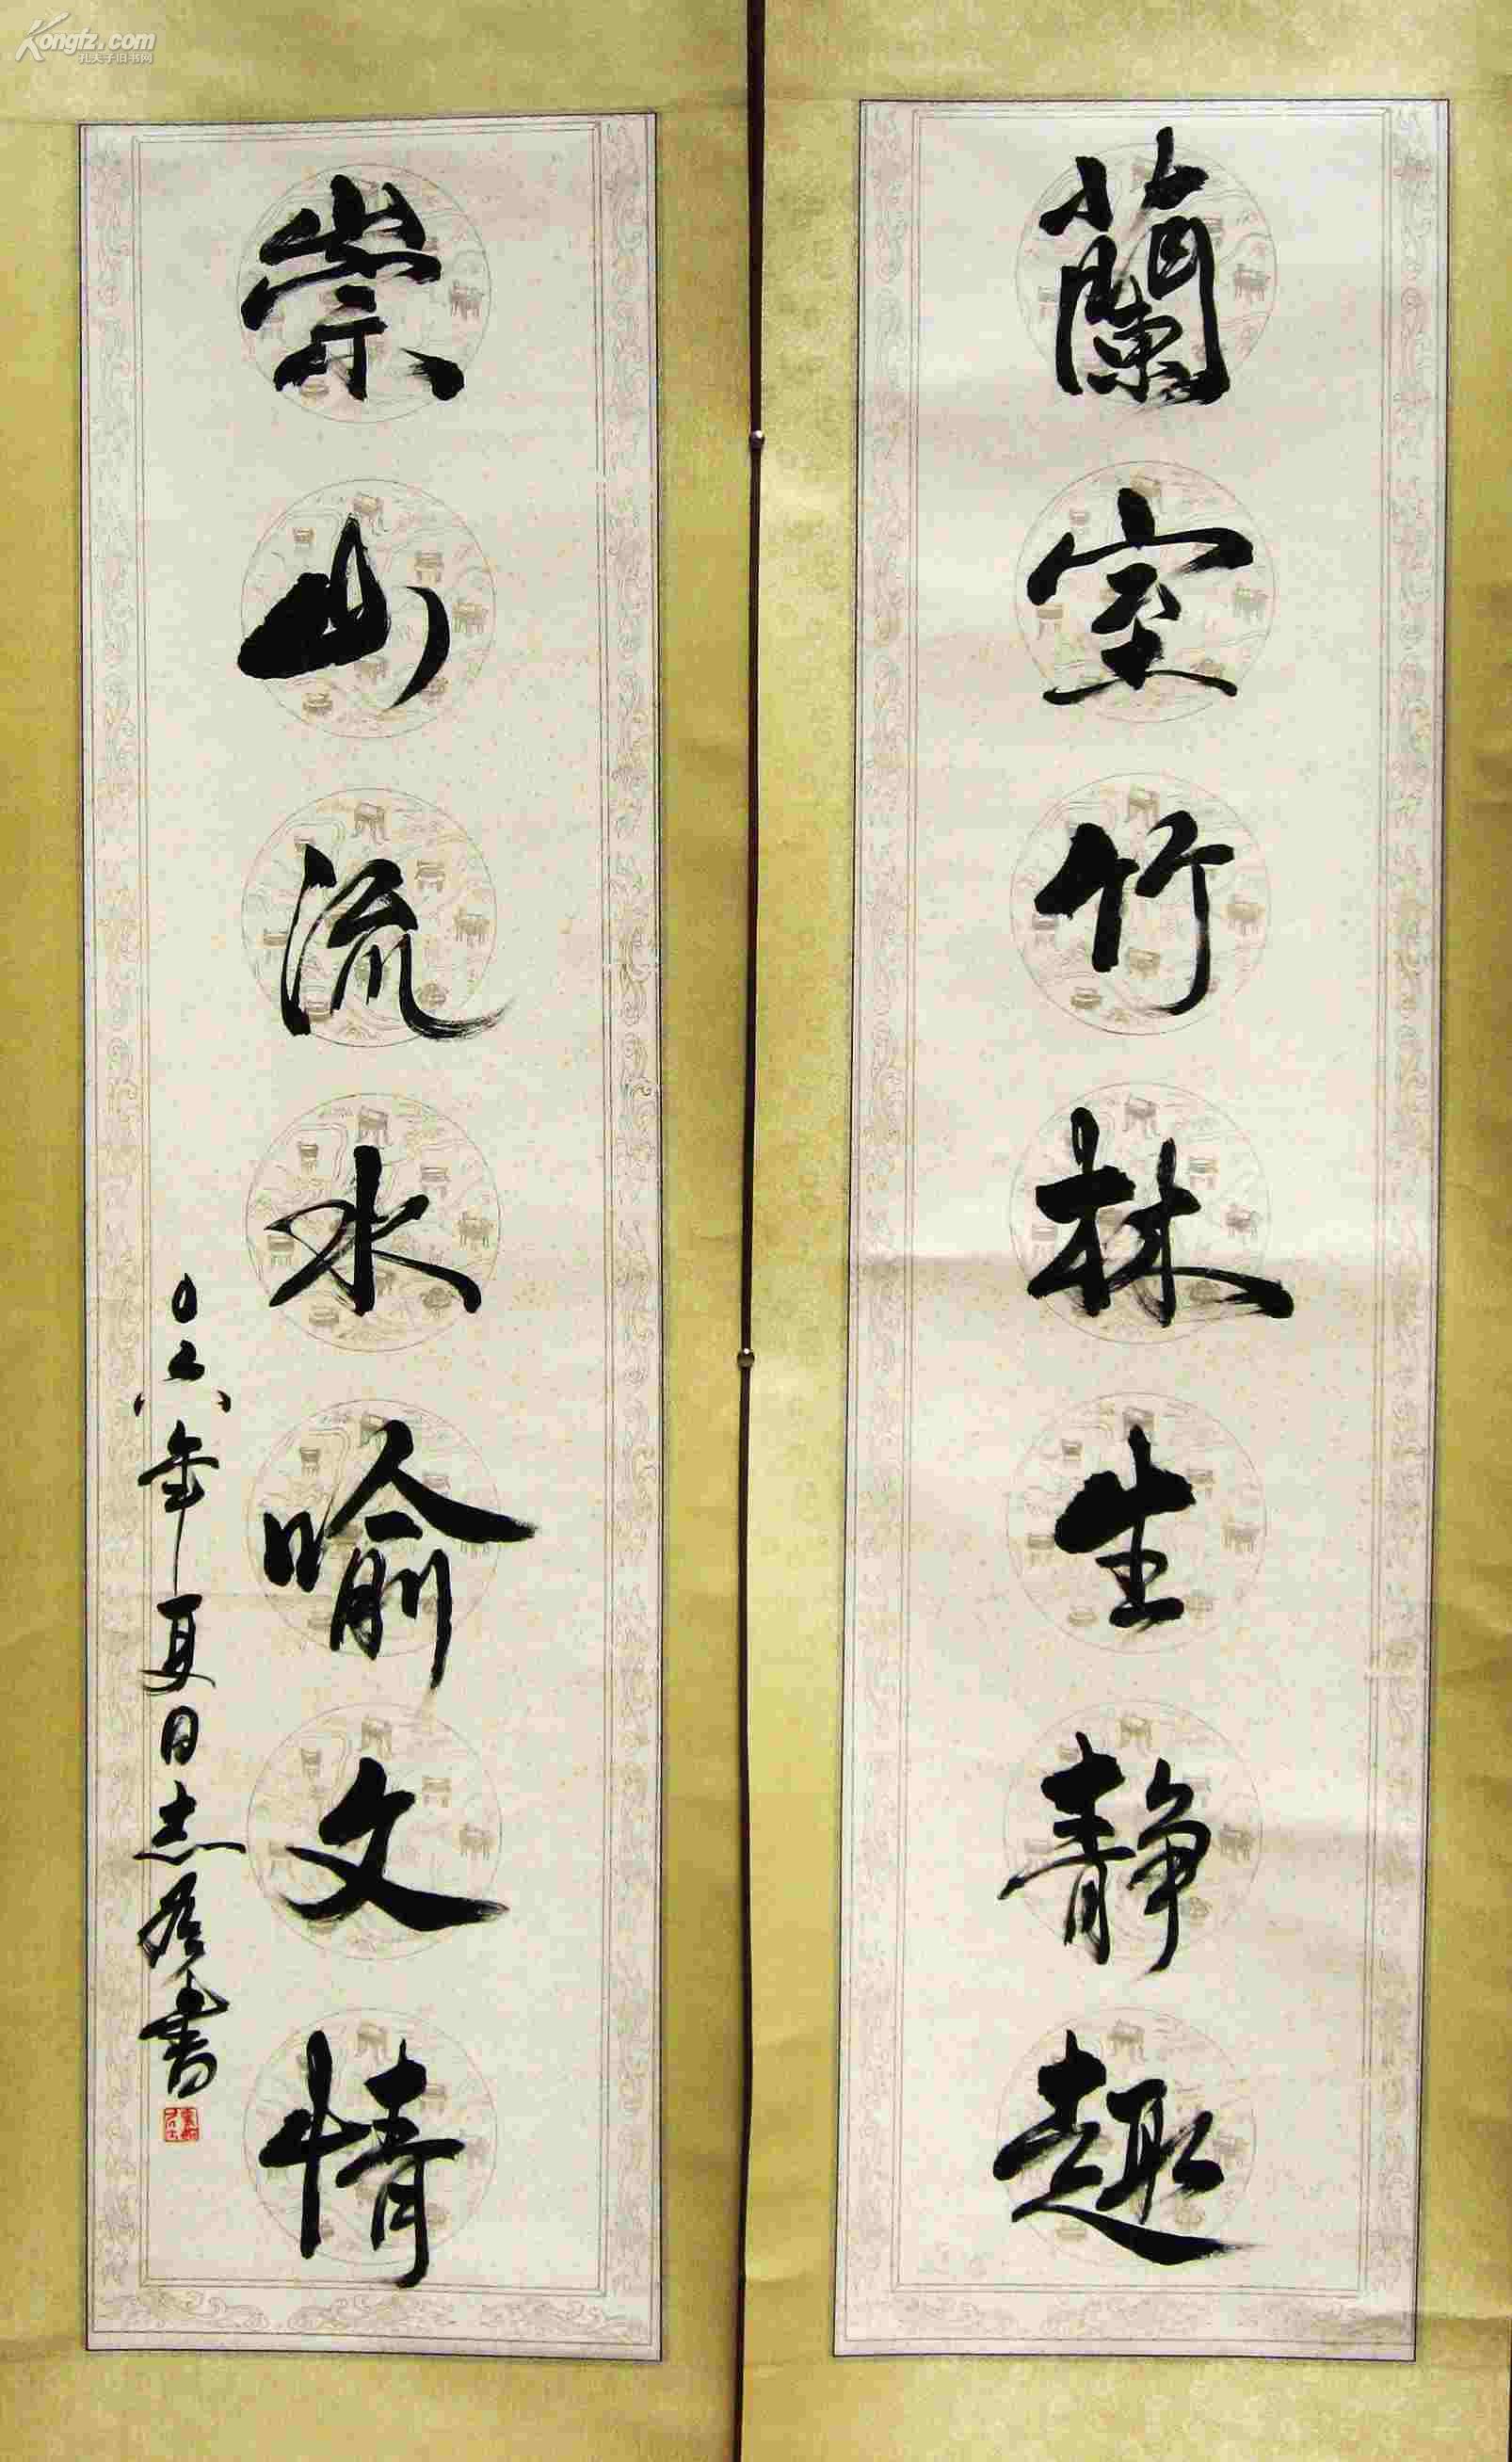 蘭室竹林生静趣
崇山流水喻文情
〇六年夏日志君書
Kongfz.com
孔夫子旧书网